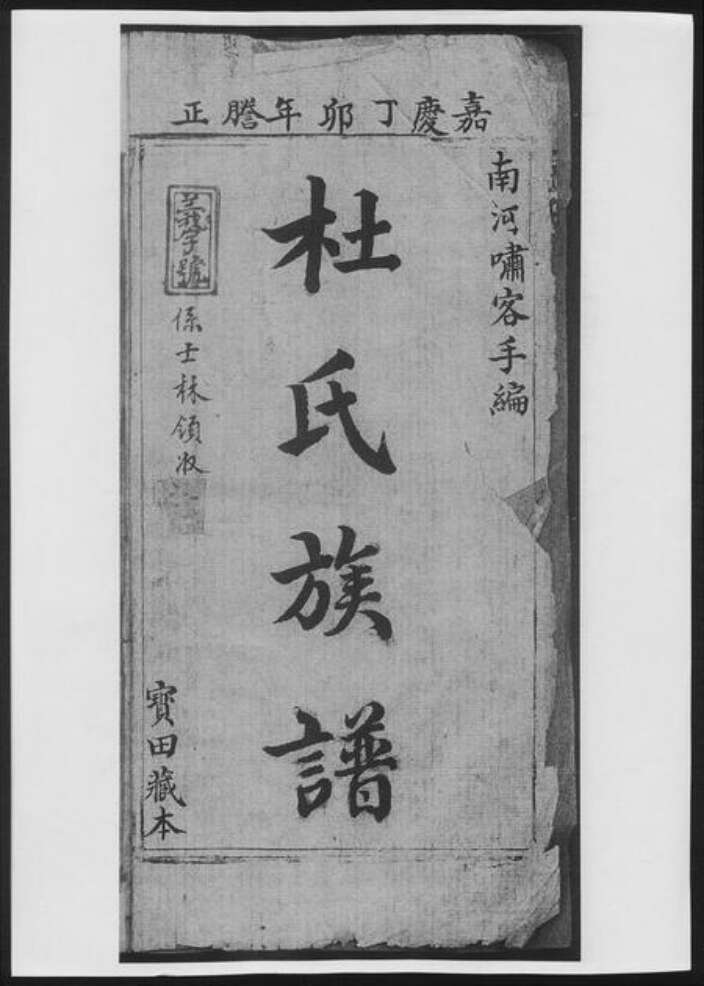 嘉慶丁卯年謄正
南河嘯客手編
杜氏族譜
義字號
係士林領收
寳田藏本